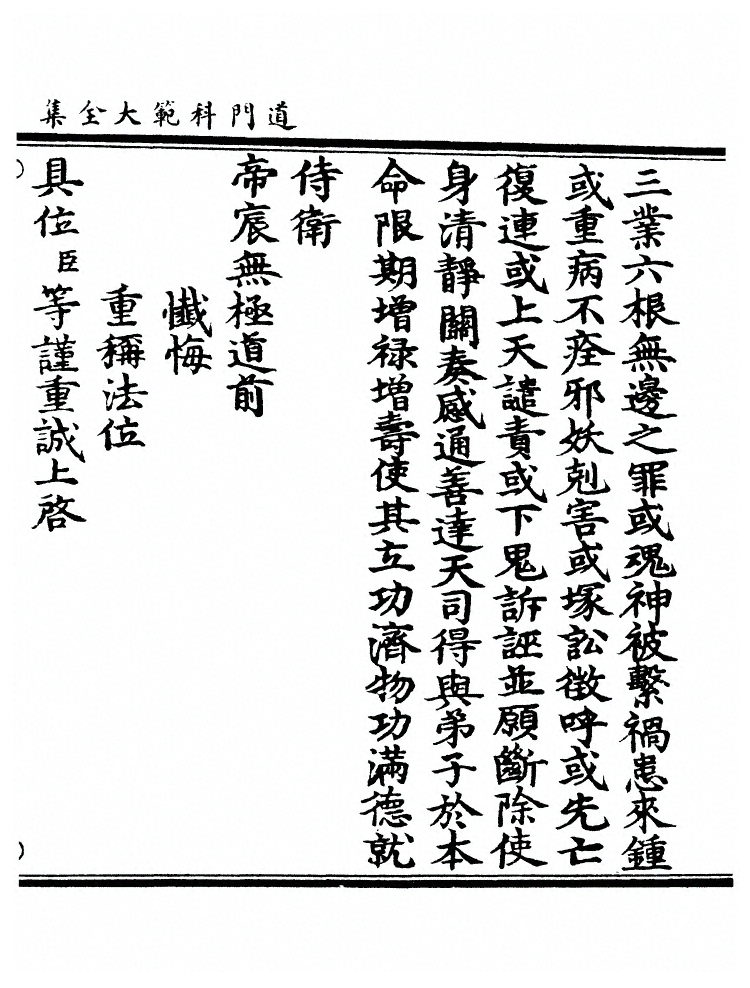 道門科範大全集
三業六根無邊之罪或魂神被繫禍患來鍾
或重病不痊邪妖剋害或塚訟徵呼或先亡
復連或上天譴責或下鬼訴誣並願斷除使
身清靜關奏感通善達天司得與弟子於本
命限期增禄增壽使其立功濟物功滿德就
侍衛
帝宸無極道前
懺悔
重稱法位
具位臣等謹重誠上啓